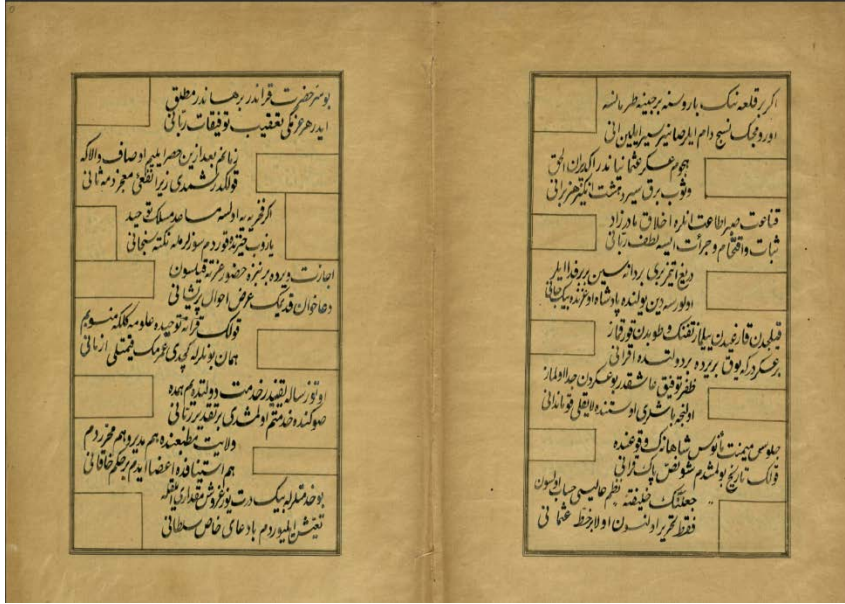 اكر بر قلعه ننك باروسنه برجينه طرمانسه
اورومجك نسج دام ايلر صانير سير ايلين انى
هجوم عسكر عثمانيانه در الحق
وثوب برق سير دهشت انكيز هژبرانى
قناعت صبر اطاعت انلره اخلاق مادرزاد
ثبات و اقتحام و جرأت ايسه لطف ربانى
دريغ ايتمز برى بر دانه سين بربر فدا ايلر
اولورسه دين يولنده پادشاه اوغرنده بيك جانى
قيليجدن قارغيدن ييلماز تفنك و طوبدن قورقماز
بر عسكردركه يوق بر يرده بر دولتده اقرانى
ظفر توفيق عاشقدر بو عسكردن جدا اولماز
اولنجه باشلرى اوستنده لايقلى قوماندانى
جلوس ميمنت مأنوس شاهانه ك وقوعنده
قولك تاريخ بولمشدم شو نص پاك قرآنى
جعلنك خليفة نظم عاليسى حساب اولسون
فقط تحرير اولنسون اولا بر خط عثمانى
بو سر حضرت قراندر برهاندر مطلق
ايدر هر عزمكى تعقيب توفيقات ربانى
زبانم بعد ازين حصر ايليم اوصاف والاكه
قولكدر زيرا نطقى معجز دمه ثانى
اكر فخريه يه اولسه مساعد مسلك توحيد
قوردم سوزلرمله نكته سنجانى
اجازت ويرده بر نبزه حضور عزته قيلسون
دعاخوان قديمك عرض احوال پريشانى
قولك قرآنه توحيده علومه كلكه منسوبم
همان بونلرله كچدى عمرمك قيمتلى ازمانى
اوتوز سالدر خدمت دولتده يم همده
صوكنده خدمتم اولمشدى بر تقدير ربانى
ولايت مطبعنده هم مدير و هم محرردم
هم استينافده اعضا ايدم بر حكم خاقانى
بو خدمتلرله بيك درت يوز غروش مقدارى
تعيش ايليوردم با دعاى خاص سلطانى